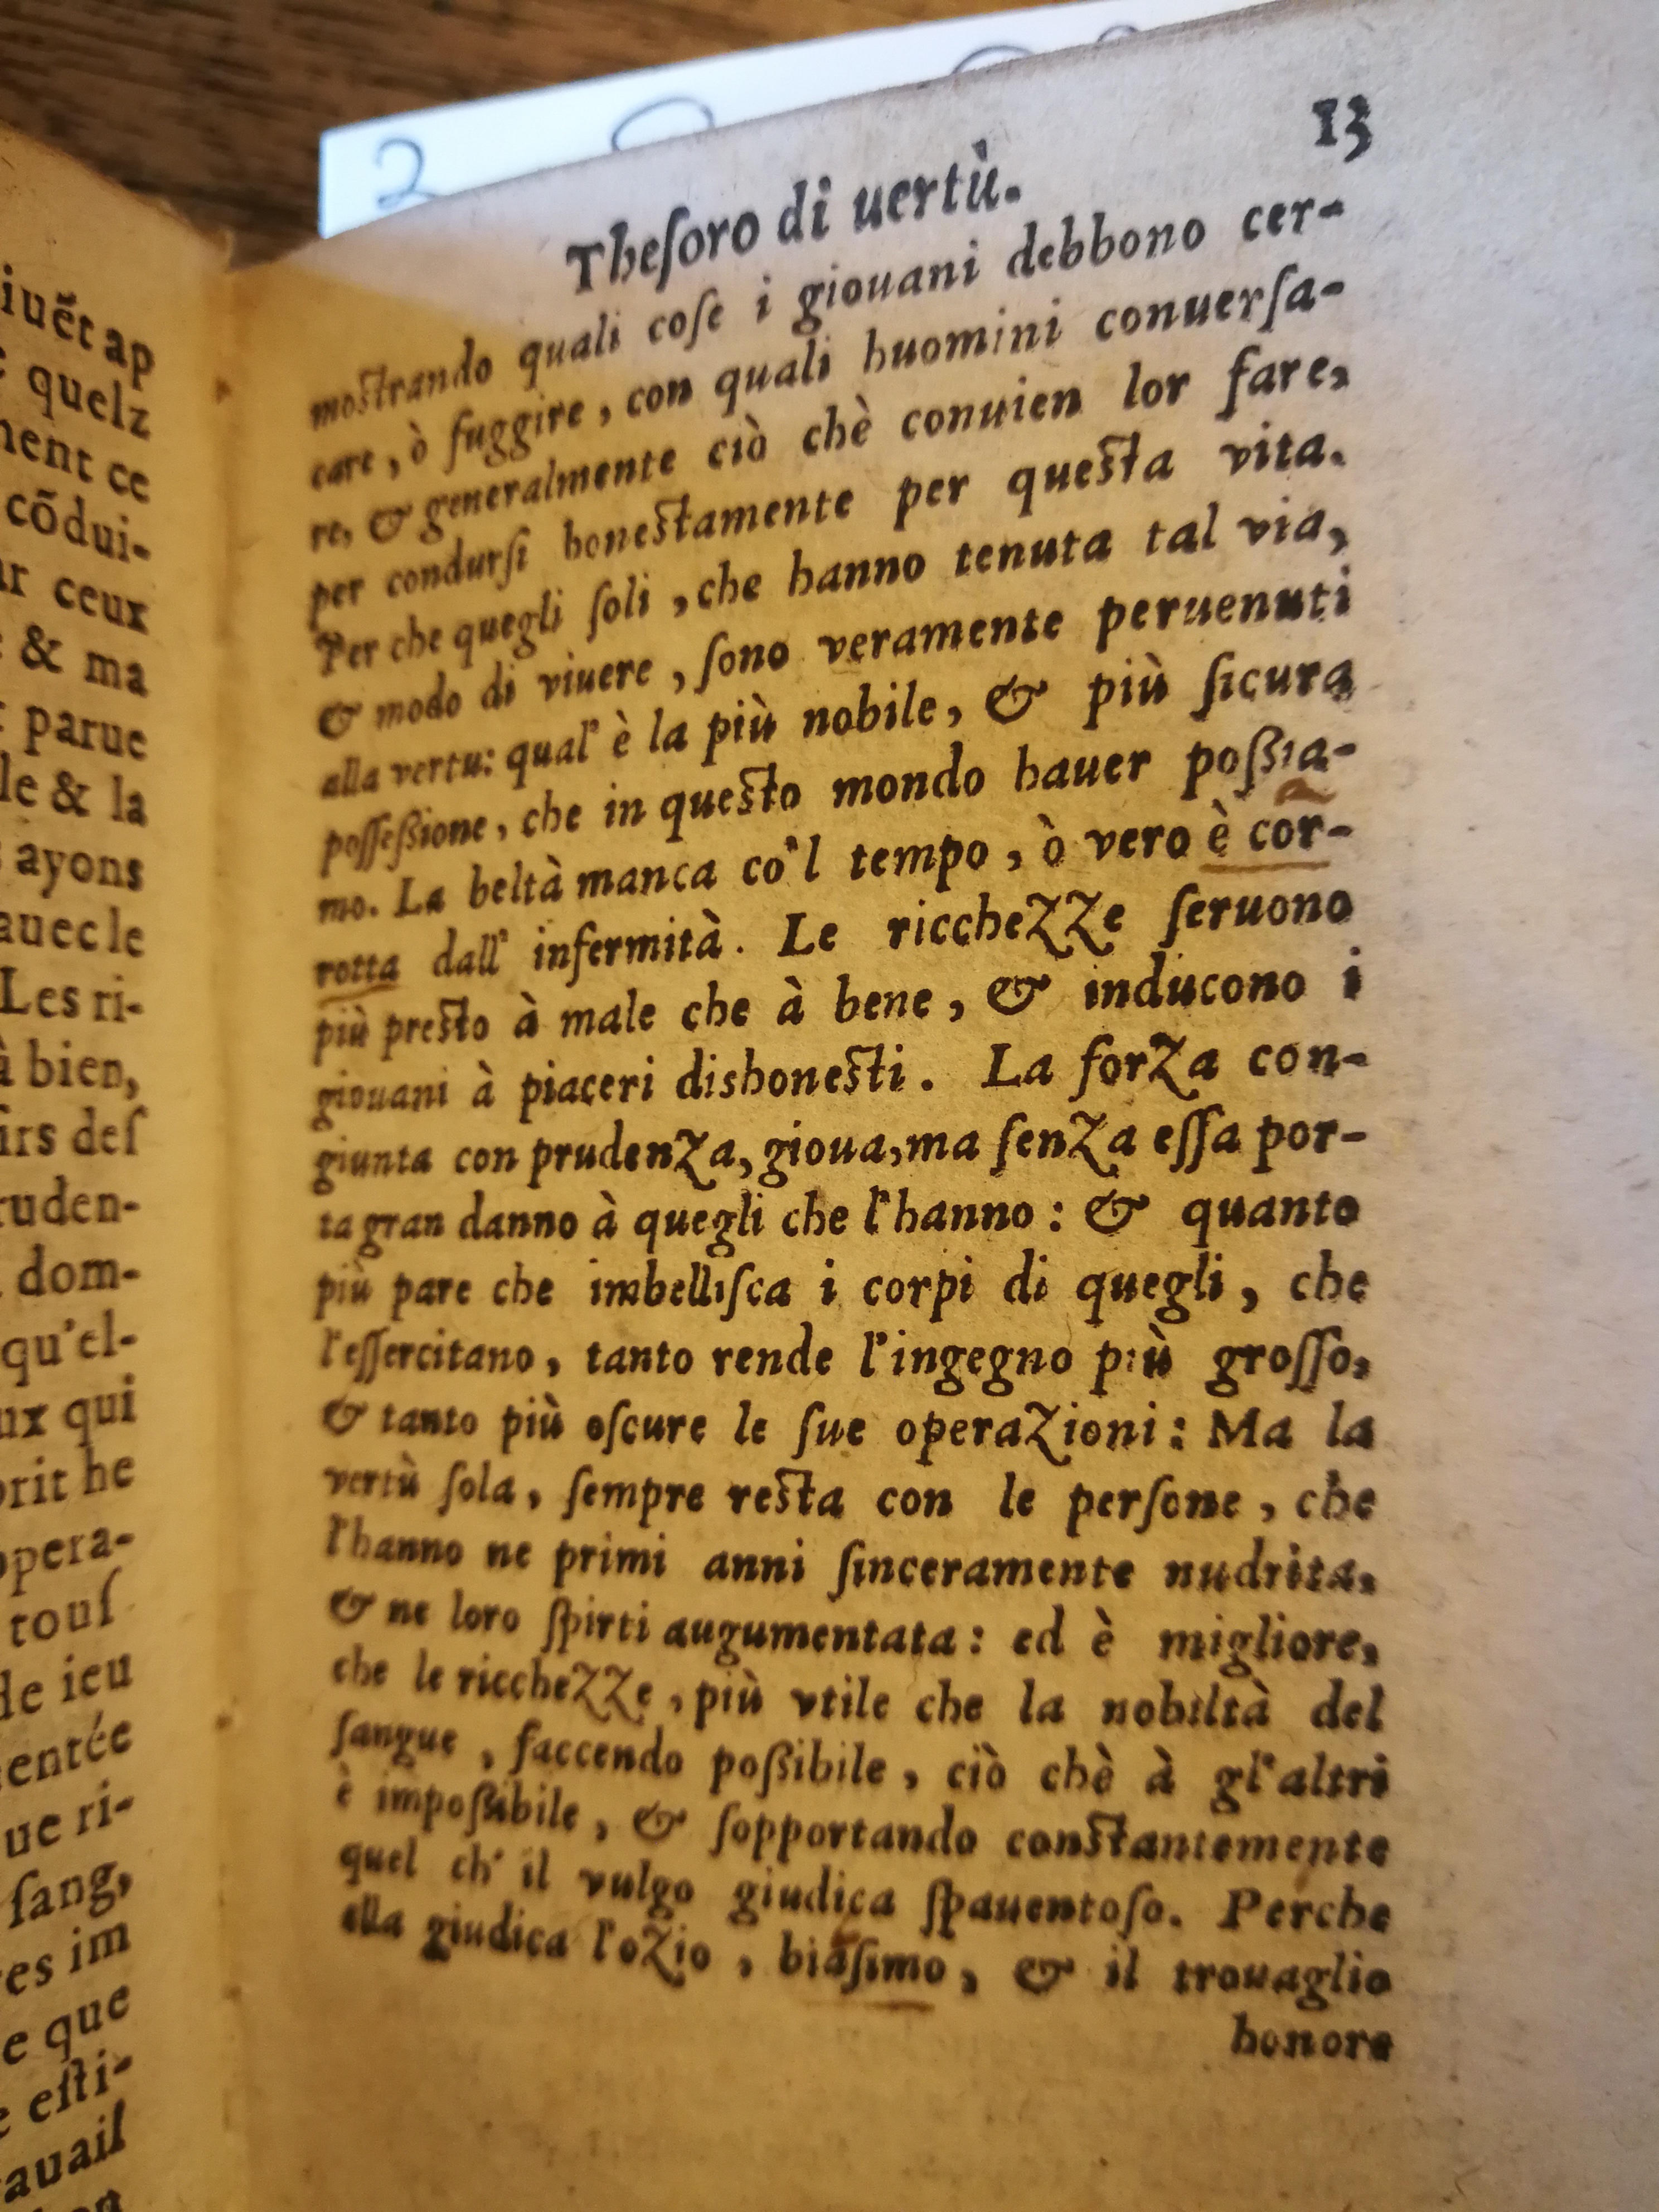 iuẽt ap
quelz
ment ce
cõdui-
ceux
& ma
parue
le & la
ayons
auec le
Les ri-
à bien,
deſ
ruden-
dom-
qu'el-
ux qui
he
opera-
touſ
de ieu
entée
ue ri-
ſang,
im
e que
eſti-
auail
2
13
Theſoro di uertù.
moſtrando quali coſe i giouani debbono cer-
care, ò fuggire, con quali huomini conuerſa-
re, & generalmente ciò chè conuien lor fare,
per condurſi honeſtamente per queſta vita.
Per che quegli ſoli, che hanno tenuta tal via,
& modo di viuere, ſono veramente peruenuti
alla vertu: qual' è la più nobile, & più ſicura
poſſeßione, che in queſto mondo hauer poßia-
mo. La beltà manca co'l tempo, ò vero è cor-
rotta dall' infermità. Le ricchezze ſeruono
più preſto à male che à bene, & inducono i
giouani à piaceri dishoneſti. La forza con-
giunta con prudenza, gioua, ma ſenza eſſa por-
ta gran danno à quegli che l'hanno: & quanto
più pare che imbelliſca i corpi di quegli, che
l'eſſercitano, tanto rende l'ingegno più groſſo,
& tanto più oſcure le ſue operazioni: Ma la
vertù ſola, ſempre reſta con le perſone, che
l'hanno ne primi anni ſinceramente nudrita,
& ne loro ſpirti augumentata: ed è migliore,
che le ricchezze, più vtile che la nobiltà del
ſangue, faccendo poßibile, ciò chè à gl'altri
è impoßibile, & ſopportando conſtantemente
quel ch' il vulgo giudica ſpauentoſo. Perche
ella giudica l'ozio, biaſimo, & il trouaglio
honore